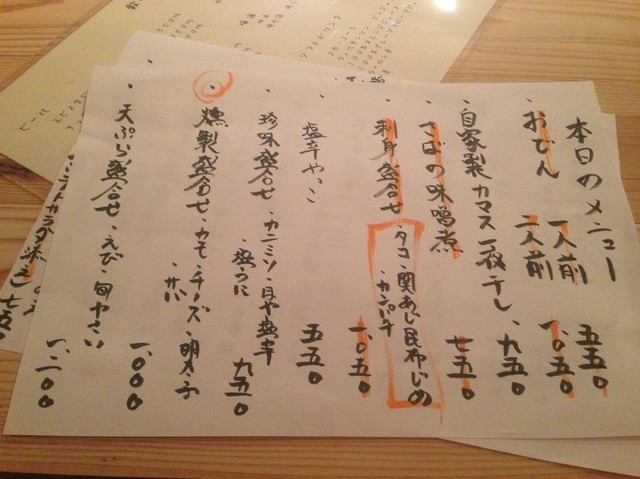 本日のメニュー
・おでん 一人前 五五〇
二人前 一、〇五〇
・自家製カマス一夜干し 九五〇
・さばの味噌煮 七五〇
・刺身盛合せ ・タコ・関あじ昆布じめ
・カンパチ 一、〇五〇
・塩辛やっこ 五五〇
・珍味盛合せ ・カニミソ・貝や塩辛
・塩うに 九五〇
・燻製盛合せ・カモ・チーズ・明太子
・サバ 一、〇〇〇
・天ぷら盛合せ・えび・旬やさい
一、二〇〇
ビール
ソフトドリンク
七五〇